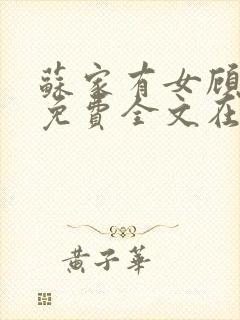 蘇家有女顧
免費全文在
黃子華